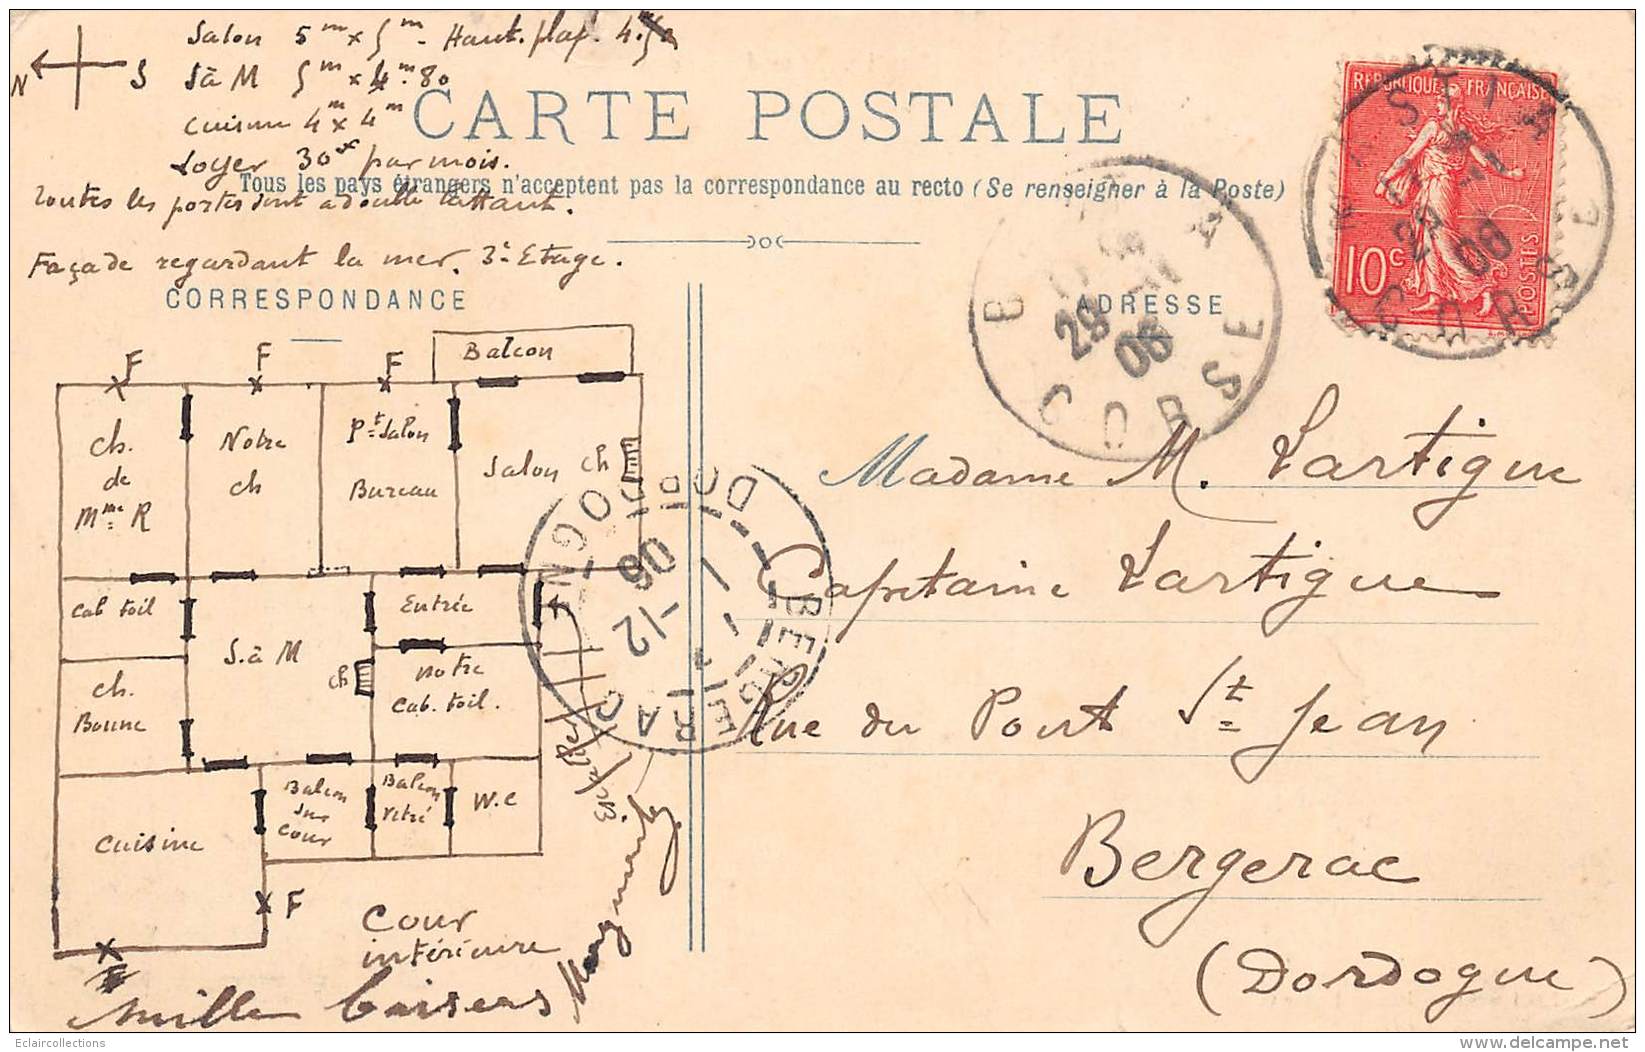 Salon 5m x 5m - Haut. plaf. 4.
N S
S à M 5m x 4m.80
Cuisine 4m x 4m
CARTE POSTALE
Loyer 30 par mois.
Tous les pays étrangers n'acceptent pas la correspondance au recto (Se renseigner à la Poste)
Toutes les portes sont à double battant.
Façade regardant la mer. 3e Etage.
CORRESPONDANCE
ADRESSE
REPUBLIQUE FRANÇAISE
10c
POSTES
BASTIA
28 -11
06
CORSE
BASTIA
28 -11
06
CORSE
F F F
Balcon
ch.
de
Mme R
Notre
ch
Pt Salon
Bureau
Salon
ch
Cab toil
S. à M
Entrée
ch
ch.
Bonne
Notre
Cab. toil.
Cuisine
Balcon
sur
Cour
Balcon
vitré
W.C
F
Cour
intérieure
F
Mille baisers
BERGERAC
1 -12
06
DORDOGNE
Madame M. Lartigue
Capitaine Lartigue
Rue du Pont St Jean
Bergerac
(Dordogne)
Eclaircollections
delcampe.net